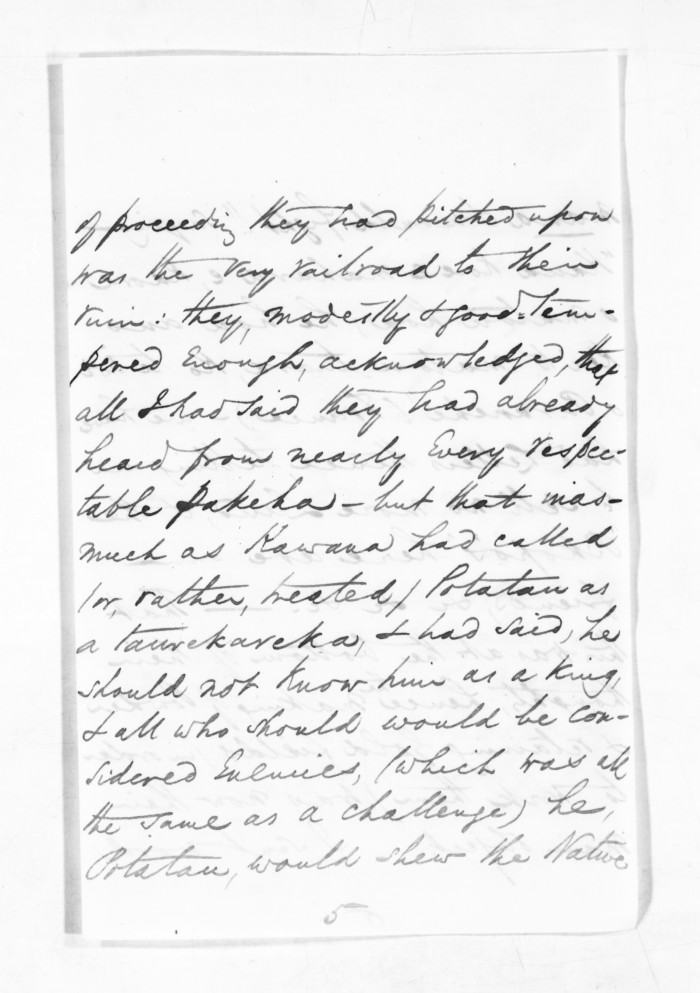 of proceeding they had pitched upon
was the very railroad to their
ruin: they, modestly & good-tem-
pered enough, acknowledged, that
all I had said they had already
heard from nearly every respec-
table Pakeha - but that inas-
much as Kawana had called
(or, rather, treated) Potatau as
a taurekareka, & had said, he
should not know him as a King,
& all who should would be con-
sidered Enemies, (which was all
the same as a challenge) he,
Potatau, would shew the Native
5